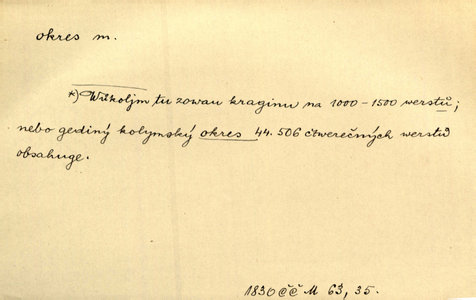 okres m.
*) Wůkoljm tu zowau kraginu na 1000-1500 werstů;
nebo gediný kolymský okres 44.506 čtwerečných werstů
obsahuge.
1830 ČČ M 63, 35.